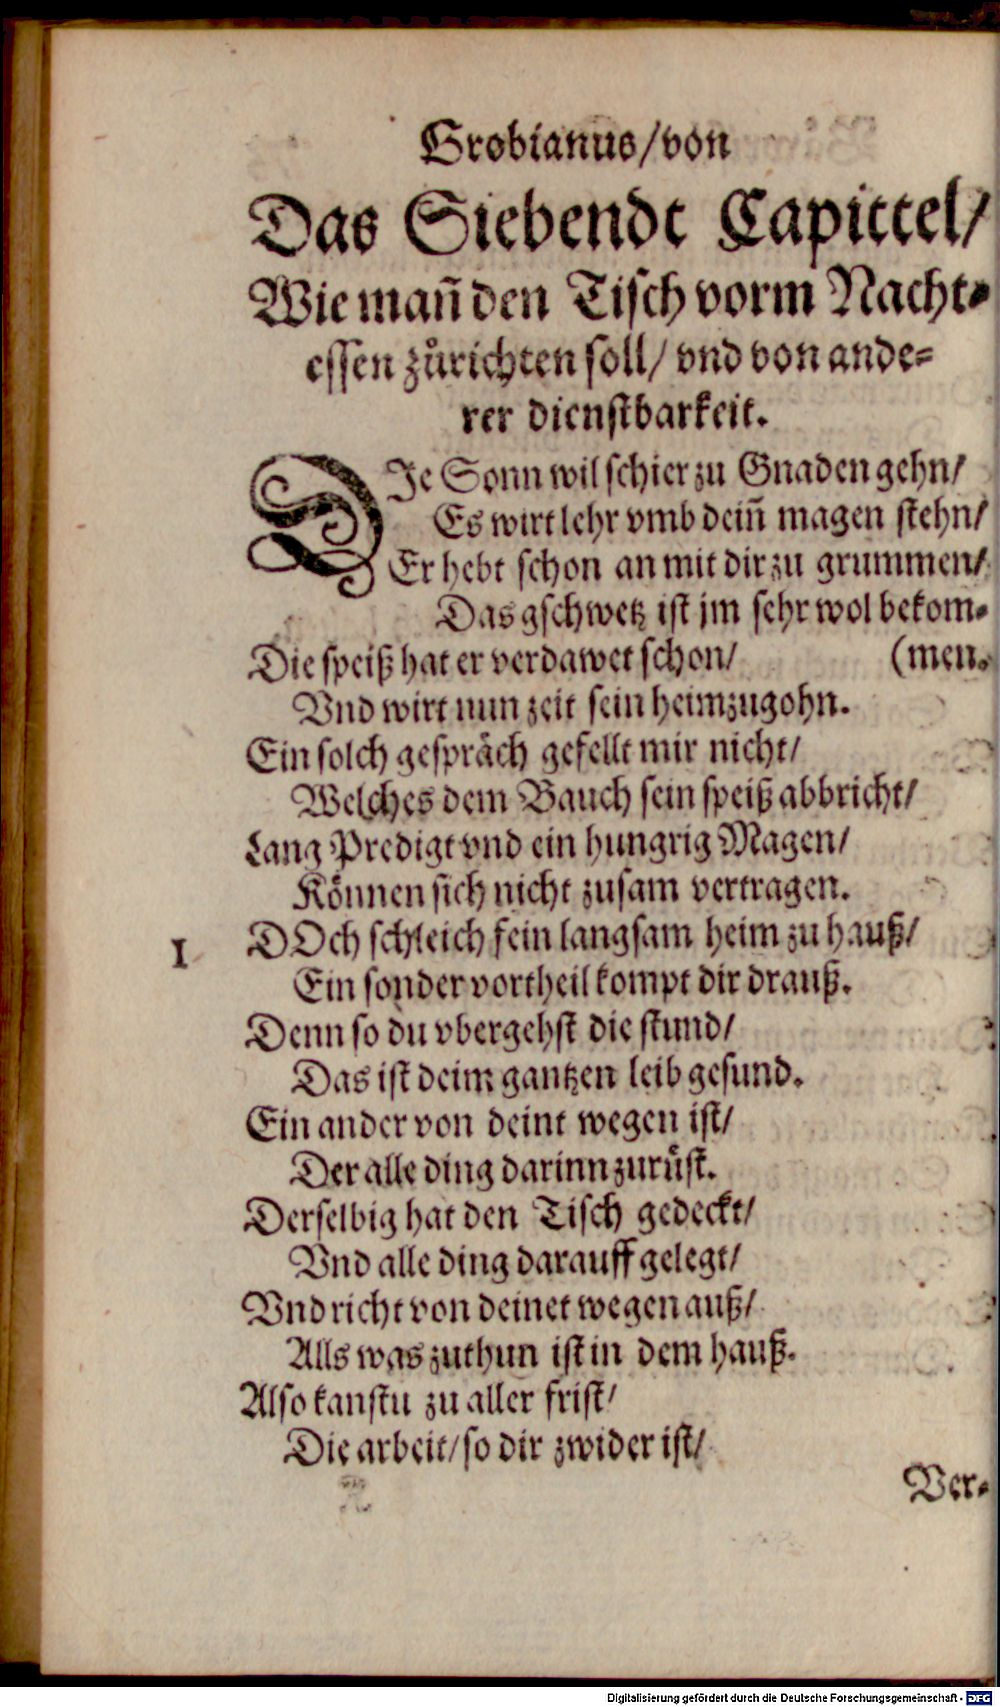 Grobianus/von
Das Siebendt Capittel/
Wie mañ den Tisch vorm Nacht-
essen zůrichten soll/ vnd von ande-
rer dienstbarkeit.
DIe Sonn wil schier zu Gnaden gehn/
Es wirt lehr vmb deiñ magen stehn/
Er hebt schon an mit dir zu grummen/
Das gschwetz ist jm sehr wol bekom-
Die speiß hat er verdawet schon/ (men.
Vnd wirt nun zeit sein heimzugohn.
Ein solch gespräch gefellt mir nicht/
Welches dem Bauch sein speiß abbricht/
Lang Predigt vnd ein hungrig Magen/
Können sich nicht zusam vertragen.
1 DOch schleich fein langsam heim zu hauß/
Ein sonder vortheil kompt dir drauß.
Denn so du vbergehst die stund/
Das ist deim gantzen leib gesund.
Ein ander von deint wegen ist/
Der alle ding darinn zurüst.
Derselbig hat den Tisch gedeckt/
Vnd alle ding darauff gelegt/
Vnd richt von deinet wegen auß/
Alls was zuthun ist in dem hauß.
Also kanstu zu aller frist/
Die arbeit/ so dir zwider ist/
Ver-
Digitalisierung gefördert durch die Deutsche Forschungsgemeinschaft - DFG